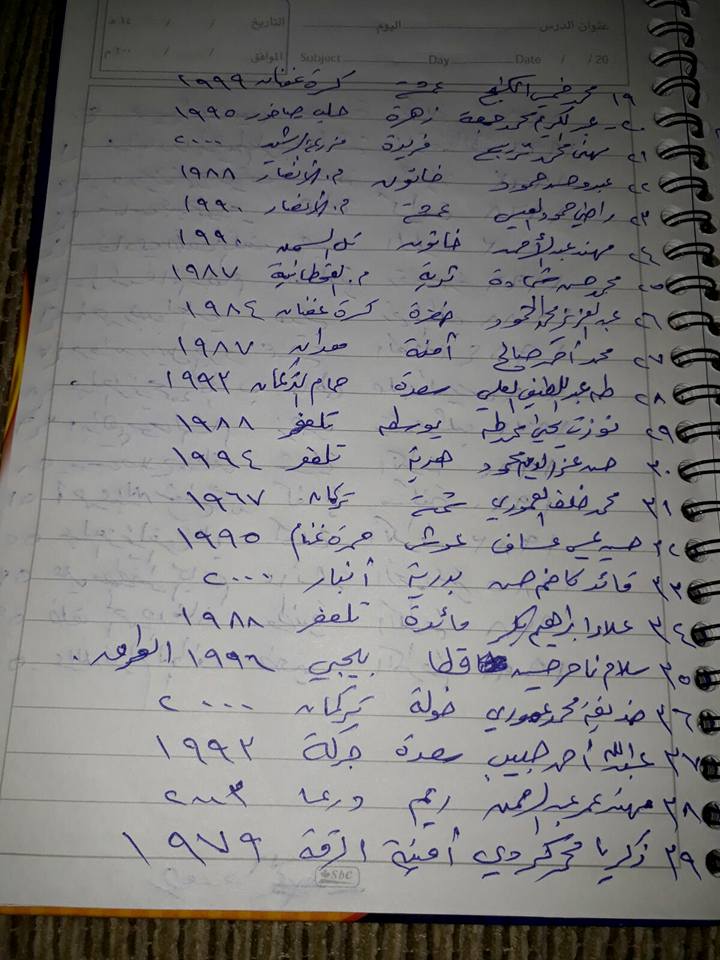 عنوان الدرس اليوم التاريخ / / ١٤ هـ
Subject Day Date / / 20 الموافق / / ٢٠٠ م
١٩ محمد عمشة كرة عفنان ١٩٩٩
٢٠ - عبد الكريم محمد جمعة زهرة حلب ١٩٩٥
٢١ مهنى محمد فريدة ٢٠٠٠
٢٢ عبد و حسن حمود خاتون م. الأنصار ١٩٨٨
٢٣ راضي حمود العيسى عمشة م. الأنصار ١٩٩٠
٢٤ مهند عبد الأحمد خاتون تل السمن ١٩٩٠
٢٥ محمد حسن شحادة ثرية م. القحطانية ١٩٨٧
٢٦ عبد العزيز محمد الحمود خضرة كرة عفنان ١٩٨٤
٢٧ محمد أحمد صالح آمنة معدان ١٩٨٧
٢٨ طه عبد اللطيف العلي سعدة حمام التركمان ١٩٩٣
٢٩ يوسطه تلعفر ١٩٨٨
٣٠ حسن عز الدين محمود هدية تلعفر ١٩٩٤
٣١ محمد خلف العموري تركمان ١٩٦٧
٣٢ حسين عيسى عساف عوش حمرة غنام ١٩٩٥
٣٣ قائد كاظم حسن بدرية أنبار ٢٠٠٠
٣٤ علاء ابراهيم بكر مائدة تلعفر ١٩٨٨
٣٥ سلام ناصر حسين بيجي ١٩٩٦ العراق.
٣٦ حذيفة محمد عموري خولة تركمان ٢٠٠٠
٣٧ عبد الله أحمد حبيب سعدة جركة ١٩٩٣
٣٨ مهند عمر عبد الرحمن ريم درعا ٢٠٠٣
٣٩ زكريا محمد كردي أمينة الرقة ١٩٧٩
sbc